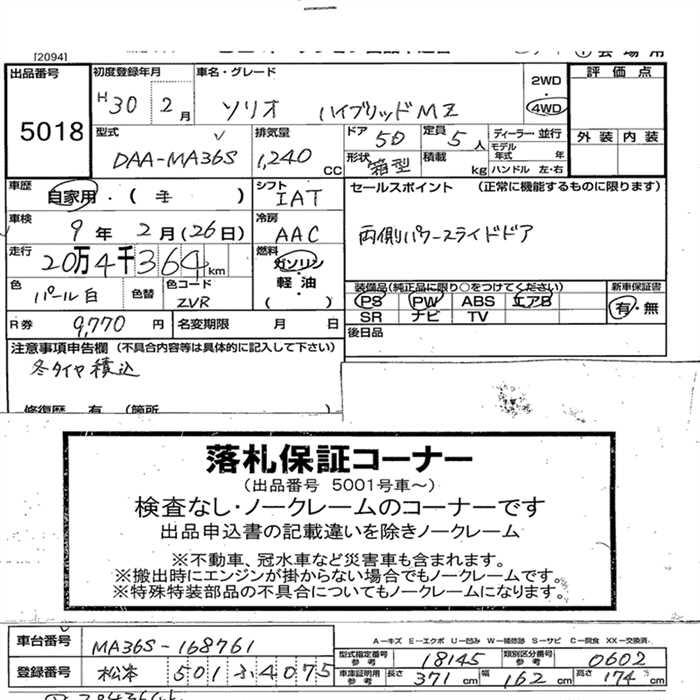 [2094]
出品番号 5018
初度登録年月 H30 2月
車名・グレード ソリオ ハイブリッドMZ
2WD 4WD
評価点
外装 内装
型式 DAA-MA36S
排気量 1,240 CC
ドア 5D
形状 箱型
定員 5人
積載 kg
ディーラー・並行
モデル年式 年
ハンドル 左・右
車歴 自家用・( )
シフト IAT
セールスポイント (正常に機能するものに限ります)
両側パワースライドドア
車検 9年 2月(26日)
冷房 AAC
走行 20万4千364km
燃料 ガソリン 軽油 ( )
色 パール白
色替
色コード ZVR
装備品(純正品に限り○をつけてください)
PS PW ABS エアB
SR ナビ TV
新車保証書 有・無
R券 9,770円
名変期限 月 日
後日品
注意事項申告欄 (不具合内容等は具体的に記入して下さい)
冬タイヤ積込
修復歴 有 (箇所
落札保証コーナー
(出品番号 5001号車~)
検査なし・ノークレームのコーナーです
出品申込書の記載違いを除きノークレーム
※不動車、冠水車など災害車も含まれます。
※搬出時にエンジンが掛からない場合でもノークレームです。
※特殊特装部品の不具合についてもノークレームになります。
車台番号 MA36S-168761
A-キズ E-エクボ U-凹み W-補修跡 S-サビ C-腐食 XX-交換済
型式指定番号 参考 18145
類別区分番号 参考 0602
登録番号 松本 501 る 4075
車庫証明用 参考 長さ 371 cm 幅 162 cm 高さ 174 cm